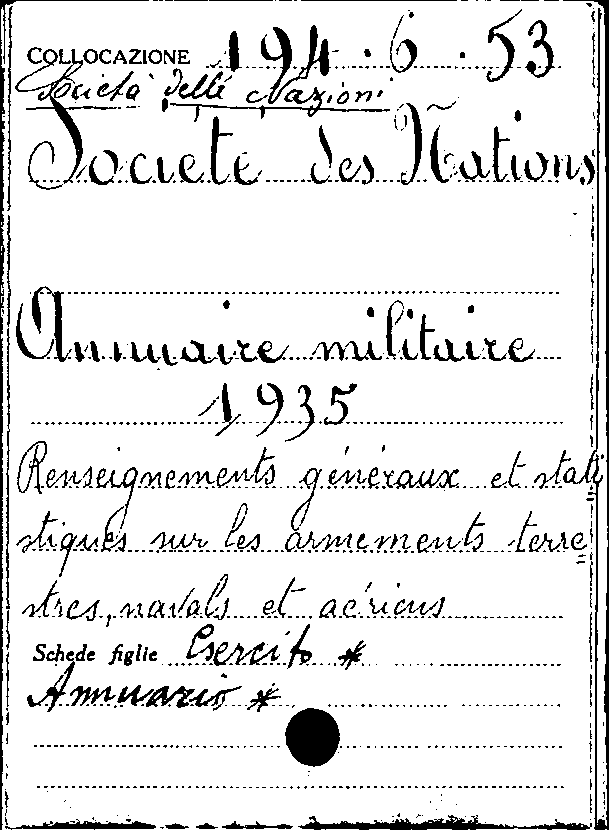 COLLOCAZIONE 194.6.53
Società delle Nazioni
Societé des Nations
Annuaire militaire
1935
Renseignements généraux et stati
stiques sur les armements terre
stres, navals et aériens
Schede figlie Esercito *
Annuario *